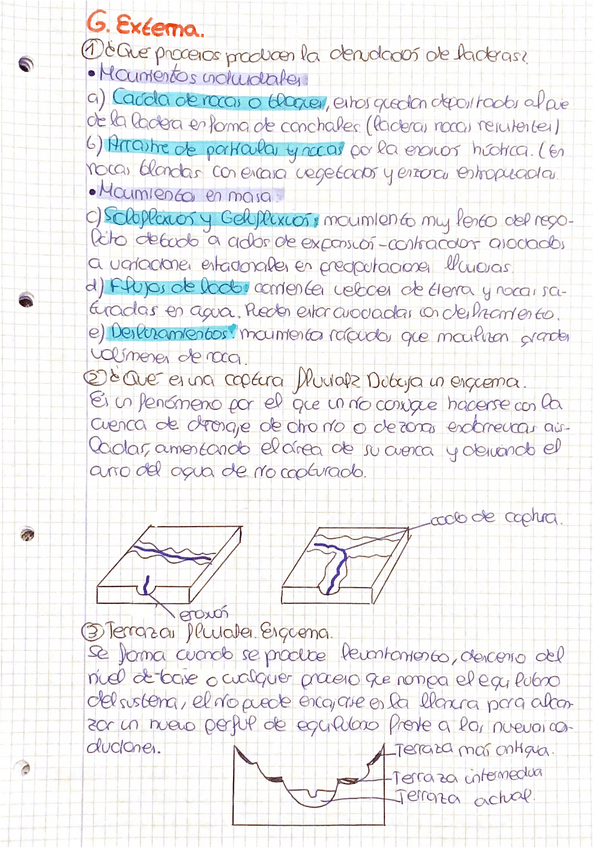 G. Externa.
① ¿Qué procesos producen la denudación de laderas?
• Movimientos individuales
a) Caída de rocas o bloques, estos quedan depositados al pie
de la ladera en forma de canchales (laderas rocas resistentes)
b) Arrastre de partículas y rocas por la erosión hídrica. (En
rocas blandas con escasa vegetación y en zonas antropizadas
• Movimiento en masa:
c) Soliflexión y Geliflexión: movimiento muy lento del rego-
lito debido a ciclos de expansión-contracción asociados
a variaciones estacionales en precipitaciones lluviosas.
d) Flujos de lodo: corrientes veloces de tierra y rocas sa-
turadas en agua. Pueden estar asociadas con deslizamiento.
e) Deslizamientos: movimientos rápidos que movilizan grandes
volúmenes de roca.
② ¿Qué es una captura fluvial? Dibuja un esquema.
Es un fenómeno por el que un río consigue hacerse con la
cuenca de drenaje de otro río o de zonas endorreicas ais-
ladas, aumentando el área de su cuenca y desviando el
curso del agua de río capturado.
codo de captura.
erosión
③ Terrazas fluviales. Esquema.
Se forma cuando se produce levantamiento, descenso del
nivel de base o cualquier proceso que rompa el equilibrio
del sistema, el río puede encajarse en la llanura para alcan-
zar un nuevo perfil de equilibrio frente a las nuevas con-
diciones.
Terraza más antigua.
Terraza intermedia
Terraza actual.